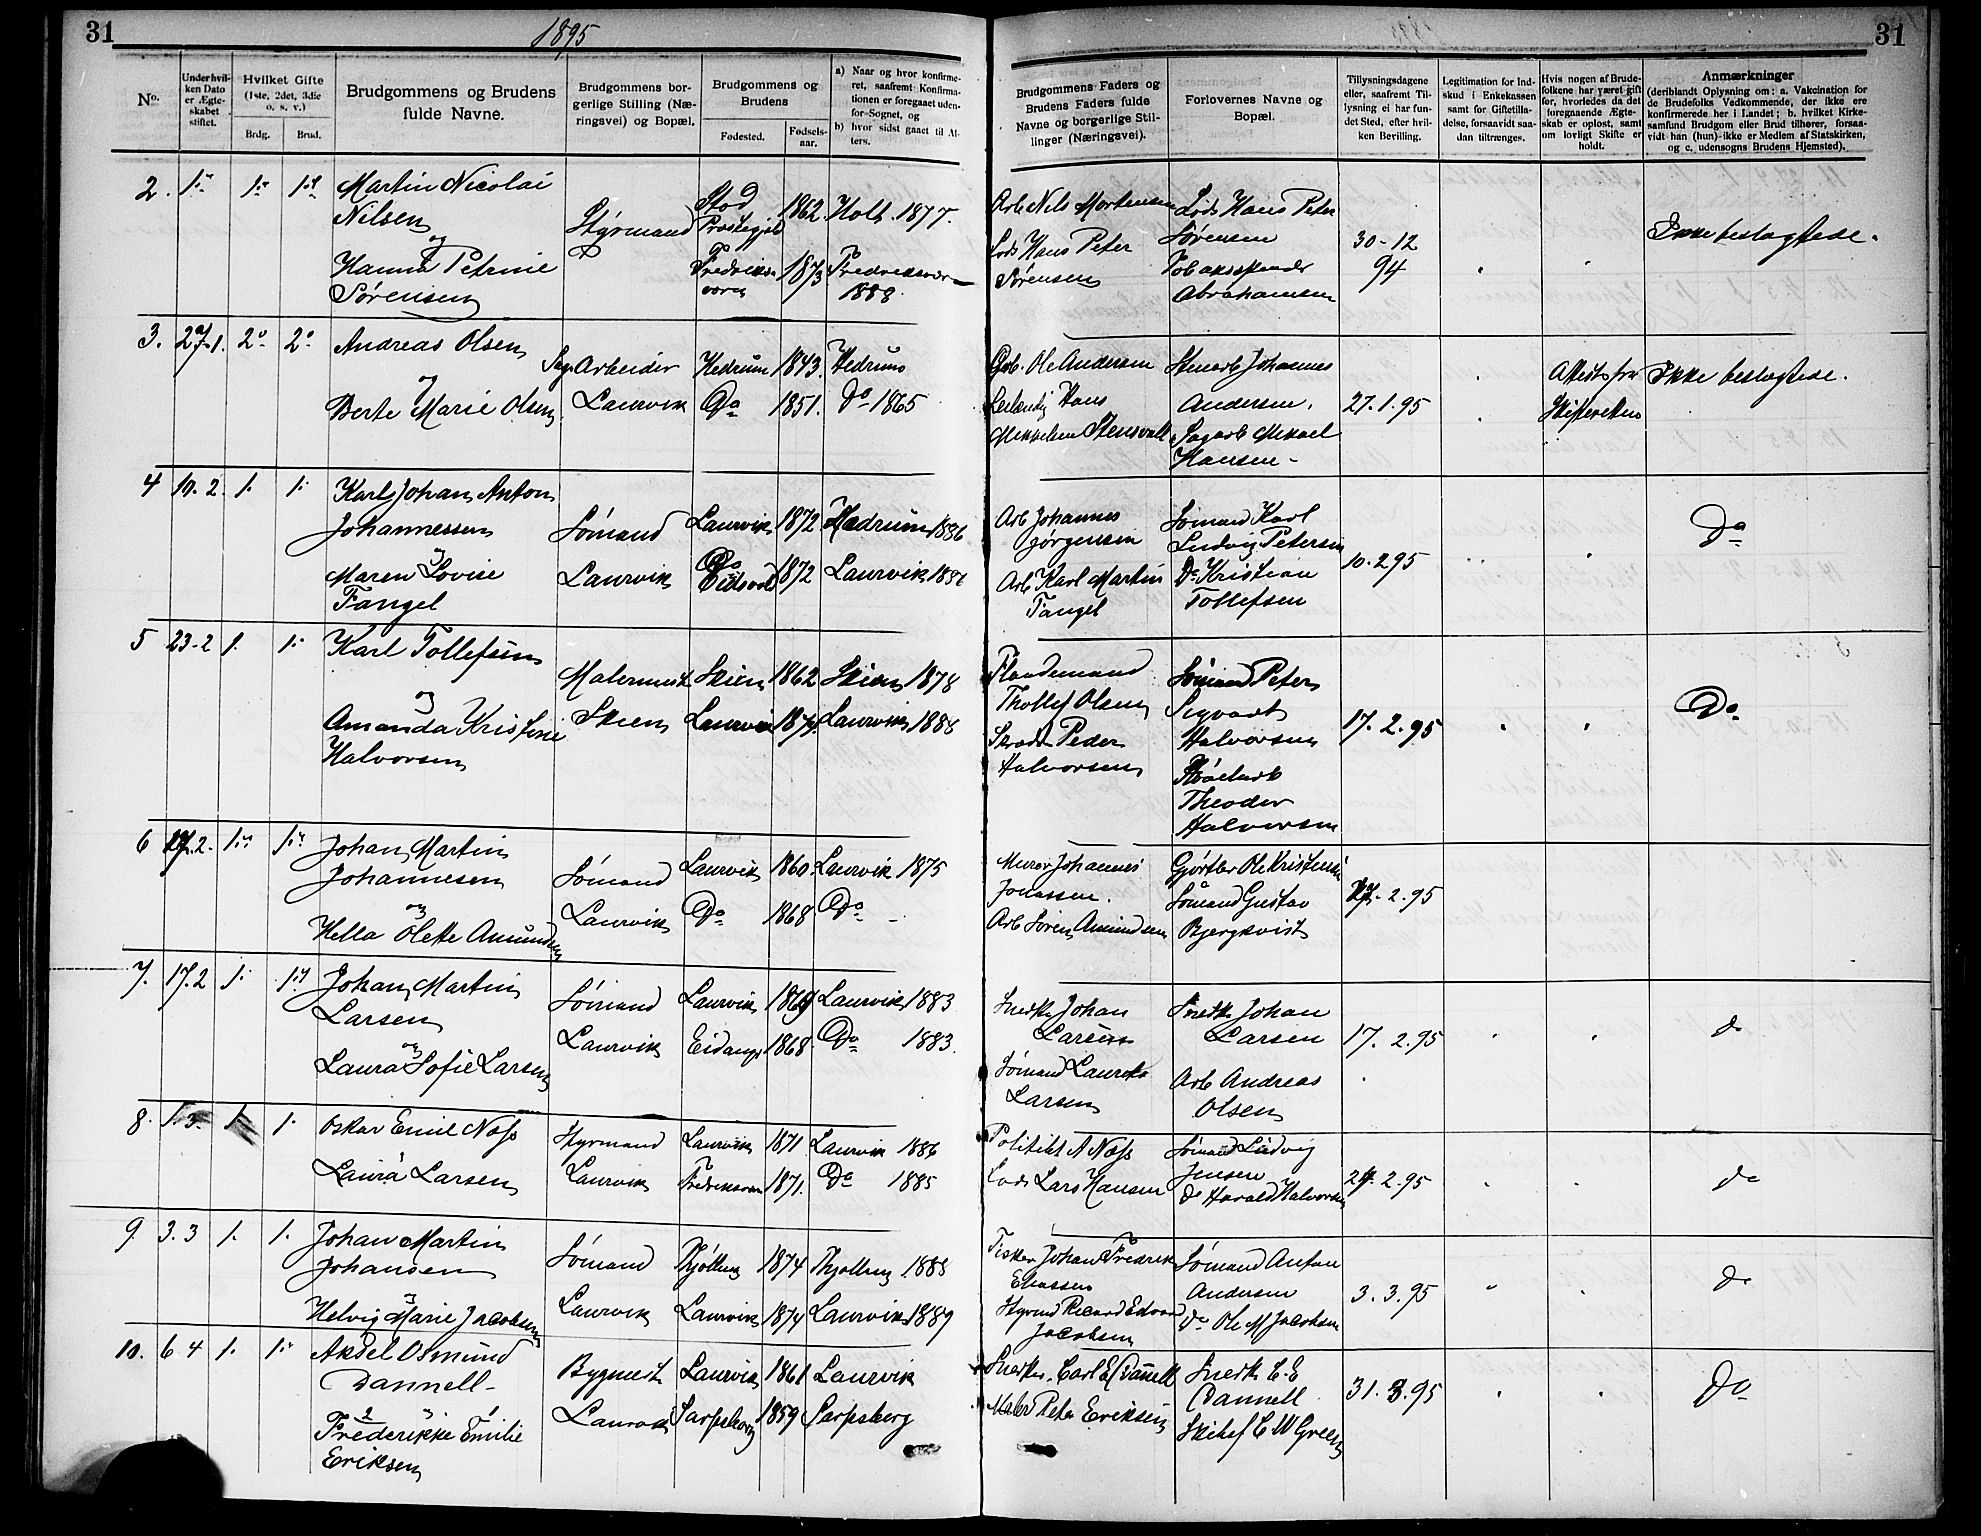 31
1895
31
No.
Under hvilken Dato er Ægteskabet stiftet.
Hvilket Gifte (1ste, 2det, 3die o. s. v.)
Brdg.
Brud.
Brudgommens og Brudens fulde Navne.
Brudgommens borgerlige Stilling (Næringsvei) og Bopæl.
Brudgommens og Brudens
Fødested.
Fødselsaar.
a) Naar og hvor konfirmeret, saafremt Konfirmationen er foregaaet udenfor Sognet, og
b) hvor sidst gaaet til Alters.
Brudgommens Faders og Brudens Faders fulde Navne og borgerlige Stillinger (Næringsvei).
Forlovernes Navne og Bopæl.
Tillysningsdagene eller, saafremt Tillysning ei har fundet Sted, efter hvilken Bevilling.
Legitimation for Indskud i Enkekassen samt for Giftetilladelse, forsaavidt saadan tiltrænges.
Hvis nogen af Brudefolkene har været gift før, hvorledes da det foregaaende Ægteskab er oplost, samt om lovligt Skifte er holdt.
Anmærkninger
(deriblandt Oplysning om: a. Vakcination for de Brudefolks Vedkommende, der ikke ere konfirmerede her i Landet; b. hvilket Kirkesamfund Brudgom eller Brud tilhører, forsaavidt han (hun) ikke er Medlem af Statskirken, og c. udensogns Brudens Hjemsted).
2. 1. 1. 1. Martin Nicolai
Nilsen
og
Hanna Petrine
Sørensen
Styrmand
Stod
Præstegjeld 1862. Holt. 1877.
Fredriksværn 1873 Fredriksværn
1888.
Arb Nils Mortensen
Lods Hans Peter
Sørensen
Lods Hans Peter
Sørensen
Abrahamsen
30-12
94
Ikke beslægtede.
3. 27-1. 2 2 Andreas Olsen
og
Berte Marie Olsen
Sag Arbeider
Laurvik
Hedrum 1843. Hedrum
Do 1851. Do 1865
Ole Andersen
Hans
Mikkelsen
Stenarb Johannes
Andersen.
Sagarb Mikael
Hansen
27.1.95
Attest fra
Skifteretten
Ikke beslægtede.
4 10.2. 1. 1. Karl Johan Anton
Johannessen
og
Maren Lovise
Tangel
Sømand
Laurvik
Laurvik 1872 Hedrum 1886
Eidsvold 1872 Laurvik
Arb Johannes
Jørgensen
Arb Karl Martin
Tangel
Sømand Karl
Ludvig Petersen
Do Kristian
Tollefsen
10.2 95
Do
5 23-2 1. 1. Karl Tollefsen
og
Amanda Kristine
Halvorsen
Malermest
Skien
Skien 1862 Skien 1878
Laurvik 1874. Laurvik 1888
Thollef Olsen
Peder
Halvorsen
Sømand Peter
Sigvart
Halvorsen
Theodor
Halvorsen
17.2.95
Do
6 17.2. 1. 1. Johan Martin
Johannesen
og
Hella Olette Amundsen
Sømand
Laurvik
Laurvik 1860. Laurvik 1875
Do 1868 Do
Murer Johannes
Jonassen.
Arb Søren Amundsen
Gjørtler Ole Kristensen
Sømand Gustav
Bjergkvist
17.2.95
7. 17.2 1. 1. Johan Martin
Larsen
og
Laura Sofie Larsen
Sømand
Laurvik
Laurvik 1869 Laurvik 1883
Eidanger 1868. Do 1883.
Snedk Johan
Larsen
Sømand Laurits
Larsen
Snedk Johan
Larsen
Arb Andreas
Olsen
17. 2.95
do
8. 1. 3. 1. 1. Oskar Emil Næss
Laura Larsen
Styrmand
Laurvik
Laurvik 1871 Laurvik 1886
Fredriksværn 1871. Do 1885
Politibt A Næss
Lods Lars Hansen
Sømand Ludvig
Jensen
Do Harald Halvorsen
24.2.95
do
9. 3.3 1. 1. Johan Martin
Johansen
og
Helvig Marie Jacobsen
Sømand
Laurvik
Thjølling 1874 Thjølling 1888
Laurvik 1874 Laurvik 1889
Fisker Johan Fredrik
Eliassen
Styrmd Ricard Edvard
Jacobsen
Sømand Anton
Andersen
do Ole M Jacobsen
3.3.95
do
10. 6 4 1. 1. Aksel Osmund
Dannell
Frederikke Emilie
Eriksen
Bygmest
Laurvik
Laurvik 1861 Laurvik
Sarpsborg 1859 Sarpsborg
Snedker Carl E Dannell
Maler Peter Eriksen
Snedk C.E
Dannell
C W Green
31.3.95
Do